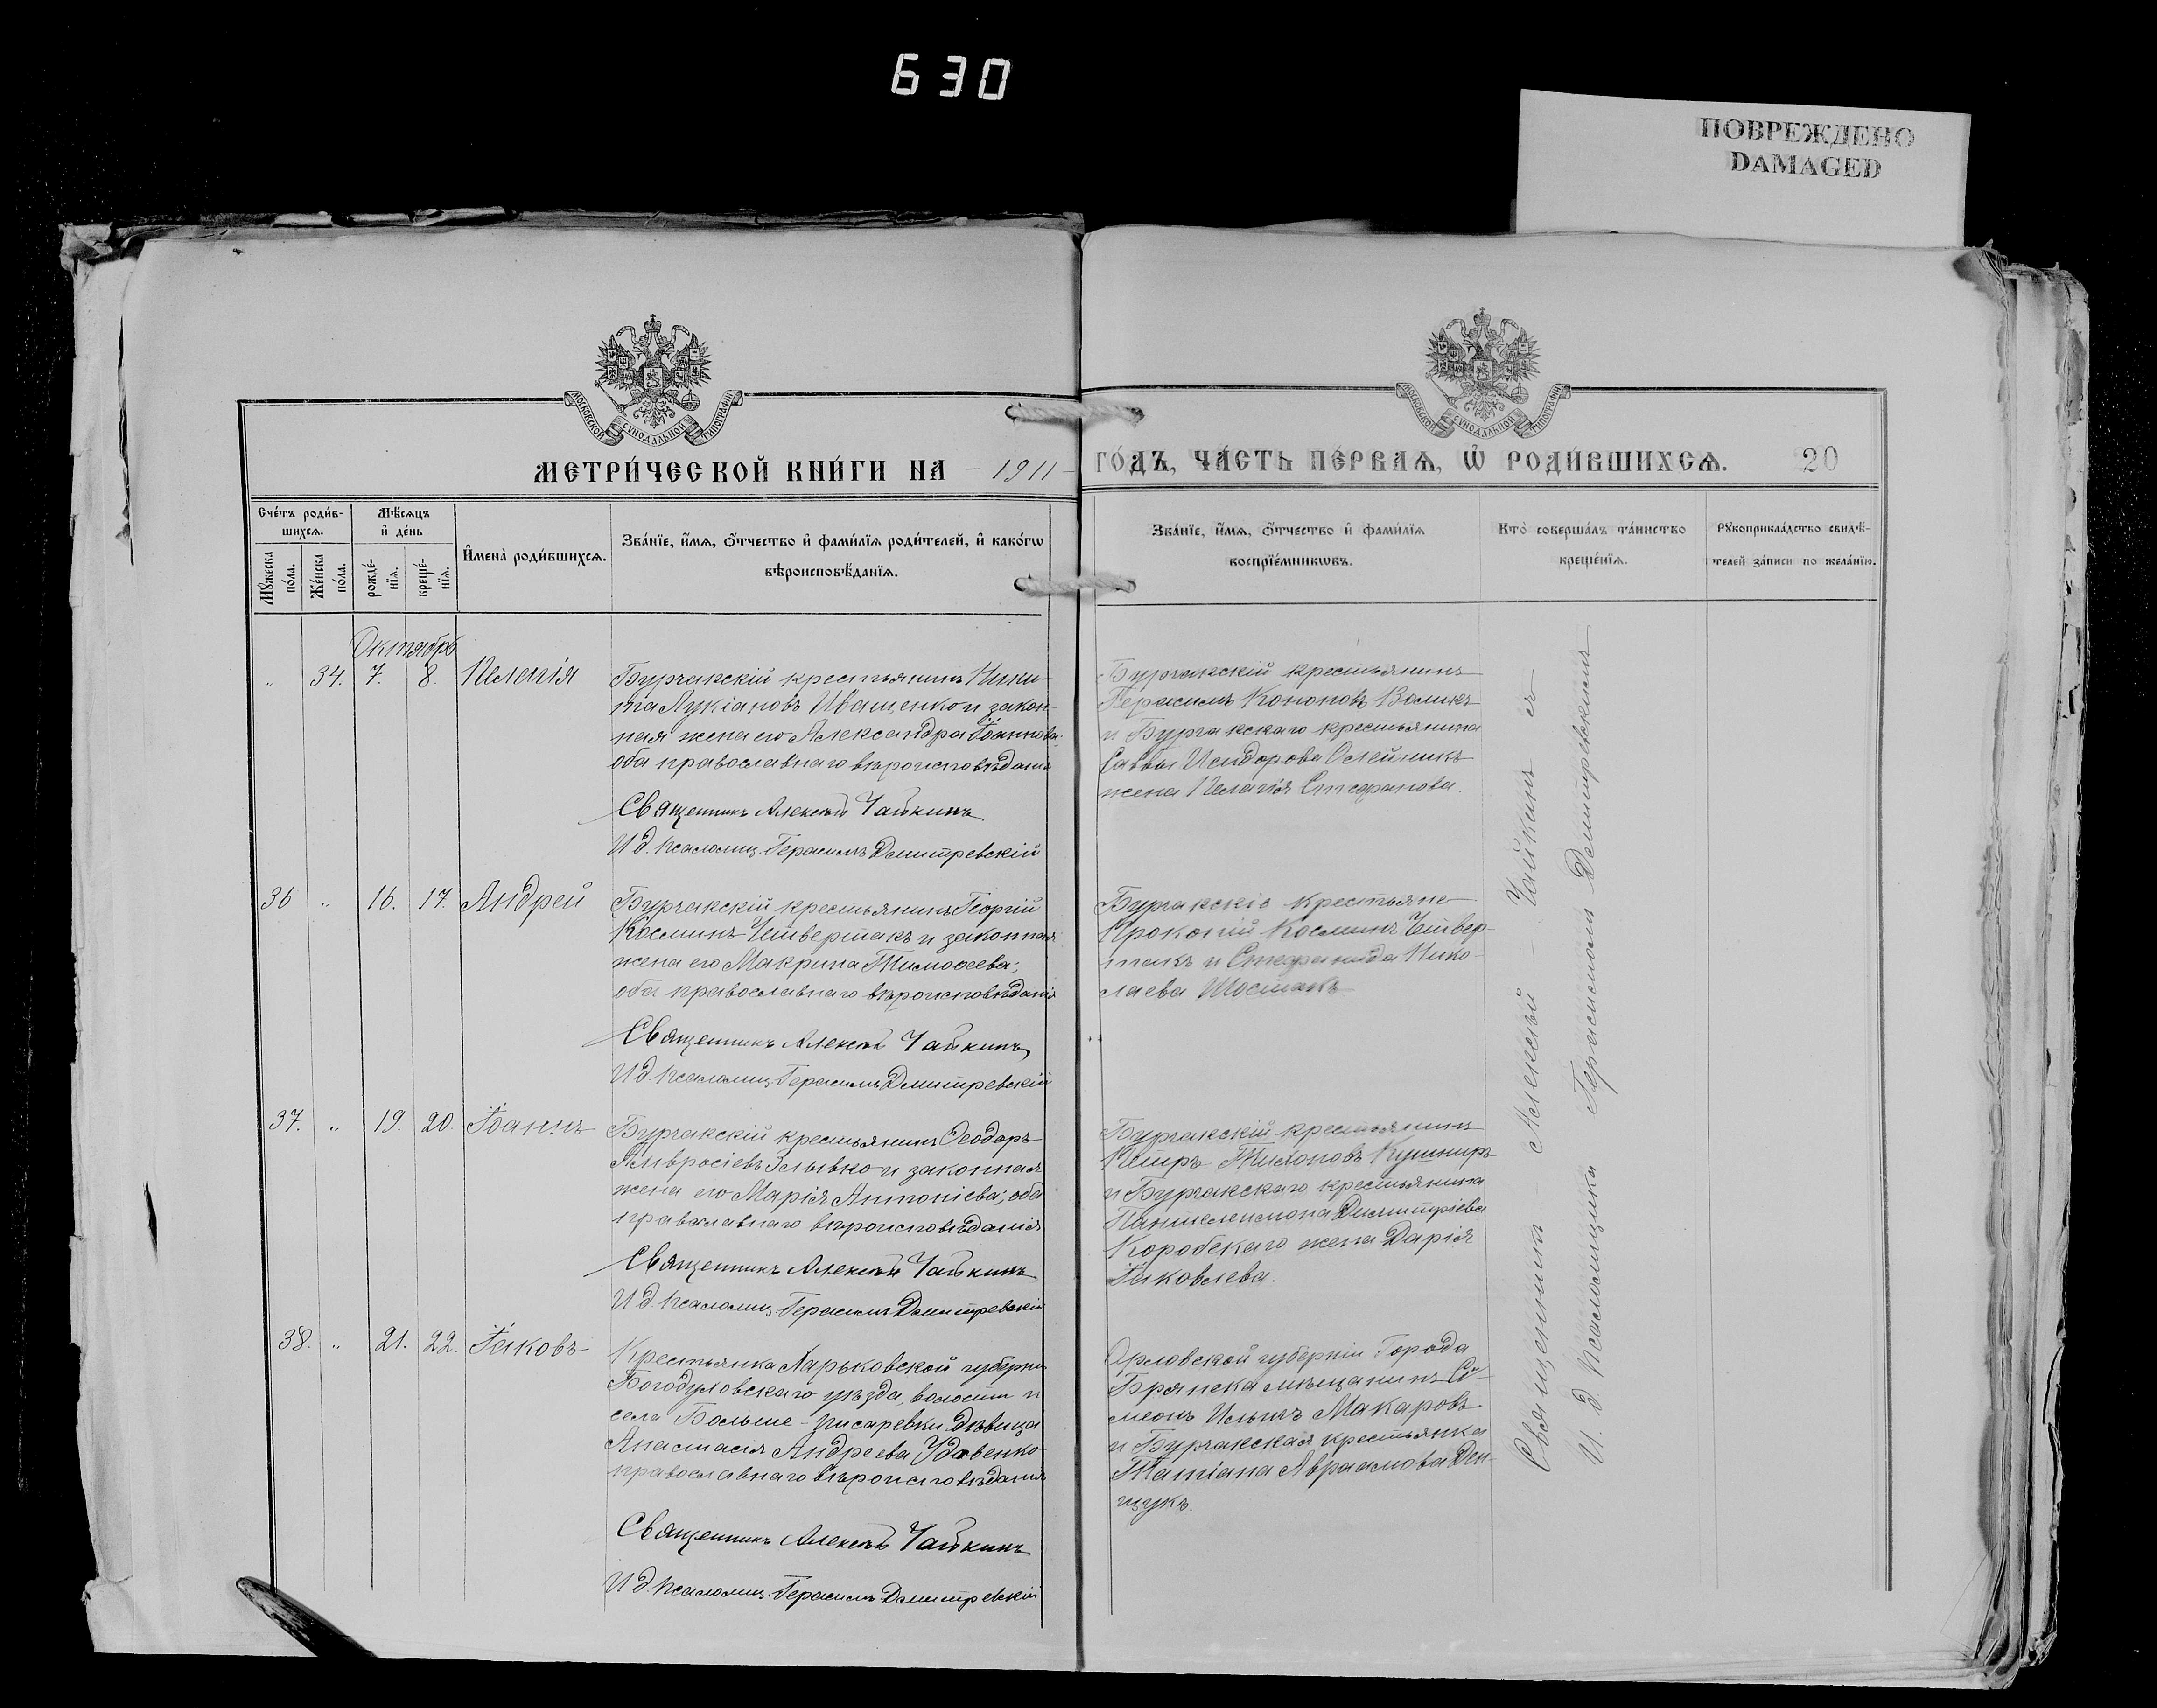 630
ПОВРЕЖДЕНО
DAMAGED
МОСКОВСКОЙ СѴНОДАЛЬНОЙ ТИПОГРАФІИ
МОСКОВСКОЙ СѴНОДАЛЬНОЙ ТИПОГРАФІИ
МЕТРИ́ЧЕСКОЙ КНИ́ГИ НА 1911 ГО́ДЪ, ЧА́СТЬ ПЕ́РВАѦ, Ѡ҆ РОДИ́ВШИХСѦ. 20
Сче́тъ роди́в-
шихсѧ.
Мѣ́сѧцъ
и҆ де́нь
Мꙋ́жеска по́ла.
Же́нска по́ла.
рожде́-
нїѧ.
креще́-
нїѧ.
И҆мена̀ роди́вшихсѧ.
Зва́нїе, и҆́мѧ, ѻ҆́тчество и҆ фами́лїѧ роди́телей, и҆ како́гѡ
вѣроисповѣ́данїѧ.
Зва́нїе, и҆́мѧ, ѻ҆́тчество и҆ фами́лїѧ
воспрїе́мникѡвъ.
Кто̀ соверша́лъ та́инство
креще́нїѧ.
Рꙋкоприкла́дство свидѣ́-
телей за́писи по жела́нїю.
Октябрь
„ 34. 7. 8. Пелагія
Бурчакскій крестьянинъ Ники-
та Лукіановъ Иващенко и закон-
ная жена его Александра Іоаннова;
оба православнаго вѣроисповѣданія
Священникъ Алексѣй Чайкинъ
И д. псаломщ. Герасимъ Дмитревскій
Бурчакскій крестьянинъ
Герасимъ Кононовъ Воликъ
и Бурчакскаго крестьянина
Саввы Исидорова Олейникъ
жена Пелагія Стефанова.
36 „ 16. 17. Андрей
Бурчакскій крестьянинъ Георгій
Косминъ Четвертакъ и законная
жена его Макрина Тимоѳеева;
оба православнаго вѣроисповѣданія
Священникъ Алексѣй Чайкинъ
И д. псаломщ. Герасимъ Дмитревскій
Бурчакскіе крестьяне
Прокопій Косминъ Четвер-
такъ и Стефанида Нико-
лаева Шостакъ
37. „ 19. 20. Іоаннъ
Бурчакскій крестьянинъ Ѳеодоръ
Амвросіевъ Зливко и законная
жена его Марія Антоніева; оба
православнаго вѣроисповѣданія
Священникъ Алексѣй Чайкинъ
И д. псаломщ. Герасимъ Дмитревскій
Бурчакскій крестьянинъ
Петръ Тихоновъ Кушниръ
и Бурчакскаго крестьянина
Пантелеимона Димитріева
Коробскаго жена Дарія
Іаковлева.
38. „ 21. 22. Іаковъ
Крестьянка Харьковской губерніи
Богодуховскаго уѣзда, волости и
села Больше-Писаревки дѣвица
Анастасія Андреева Удовенко
православнаго вѣроисповѣданія
Священникъ Алексѣй Чайкинъ
И д. псаломщ. Герасимъ Дмитревскій
Орловской губерніи Города
Брянска мѣщанинъ Си-
меонъ Ильинъ Макаровъ
и Бурчакская крестьянка
Татіана Авраамова Ден-
щукъ.
Священникъ Алексѣй Чайкинъ съ
И. д. Псаломщика Герасимомъ Дмитревскимъ